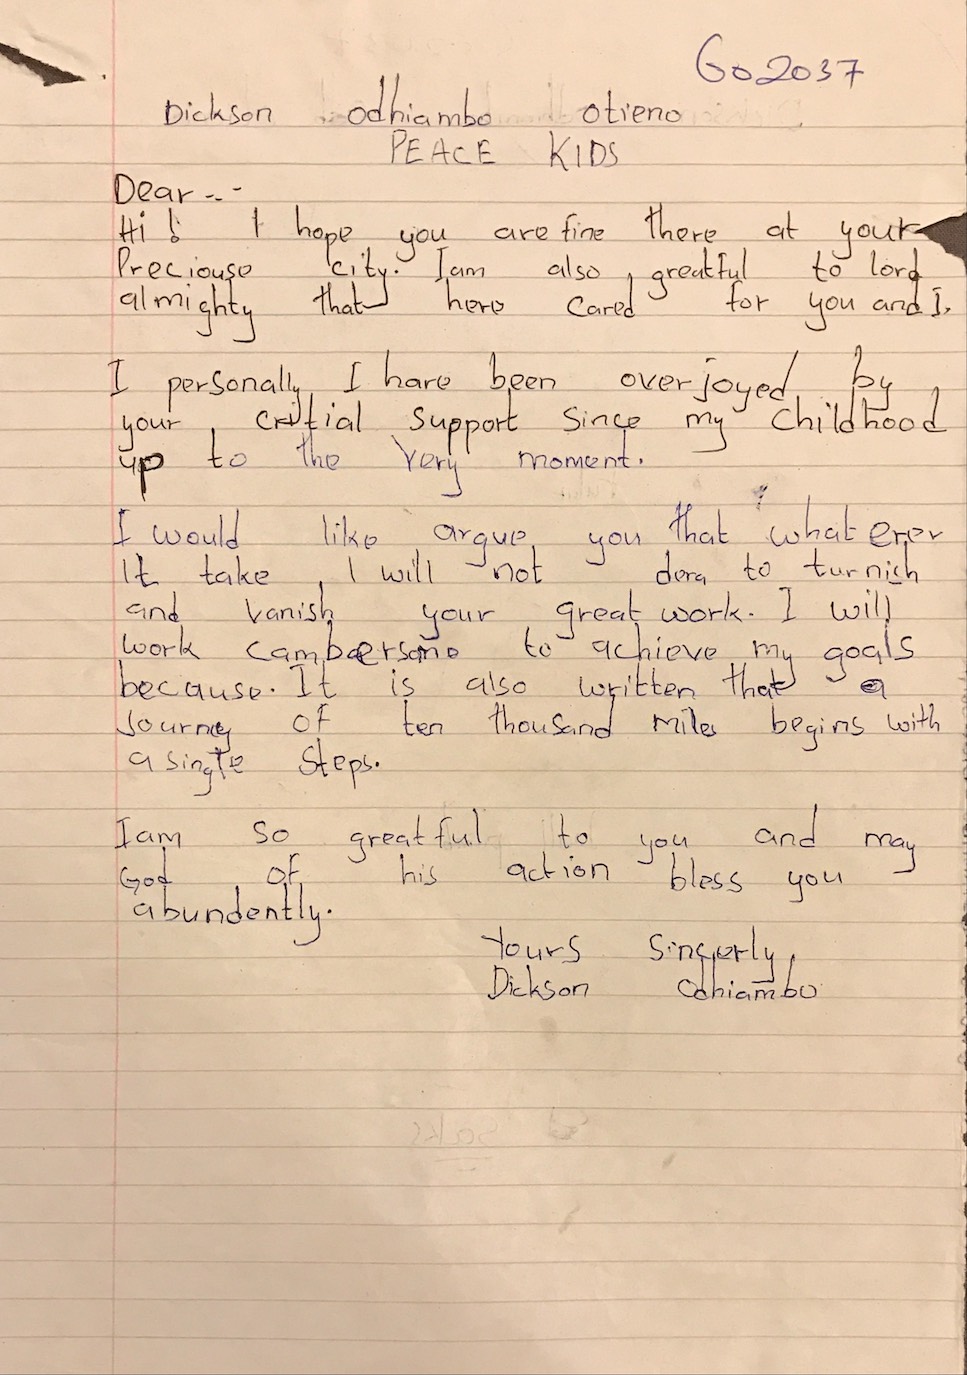 Go2037
Dickson odhiambo otieno
PEACE KIDS
Dear ..-
Hi! I hope you are fine there at your
Preciouse city. Iam also, greatful to lord
almighty that here cared for you and I.
I personally I hare been overjoyed by
your, support since my childhood
up to the Very moment.
I would like argue you that what erer
It take, I will not dora to turnish
and vanish your great work. I will
work to achieve my goals
because. It is also written that a
Journey of ten thousand miles begins with
a single steps.
Iam so greatful to you and may
God of his action bless you
abundently.
Yours Sincerly,
Dickson Odhiambo